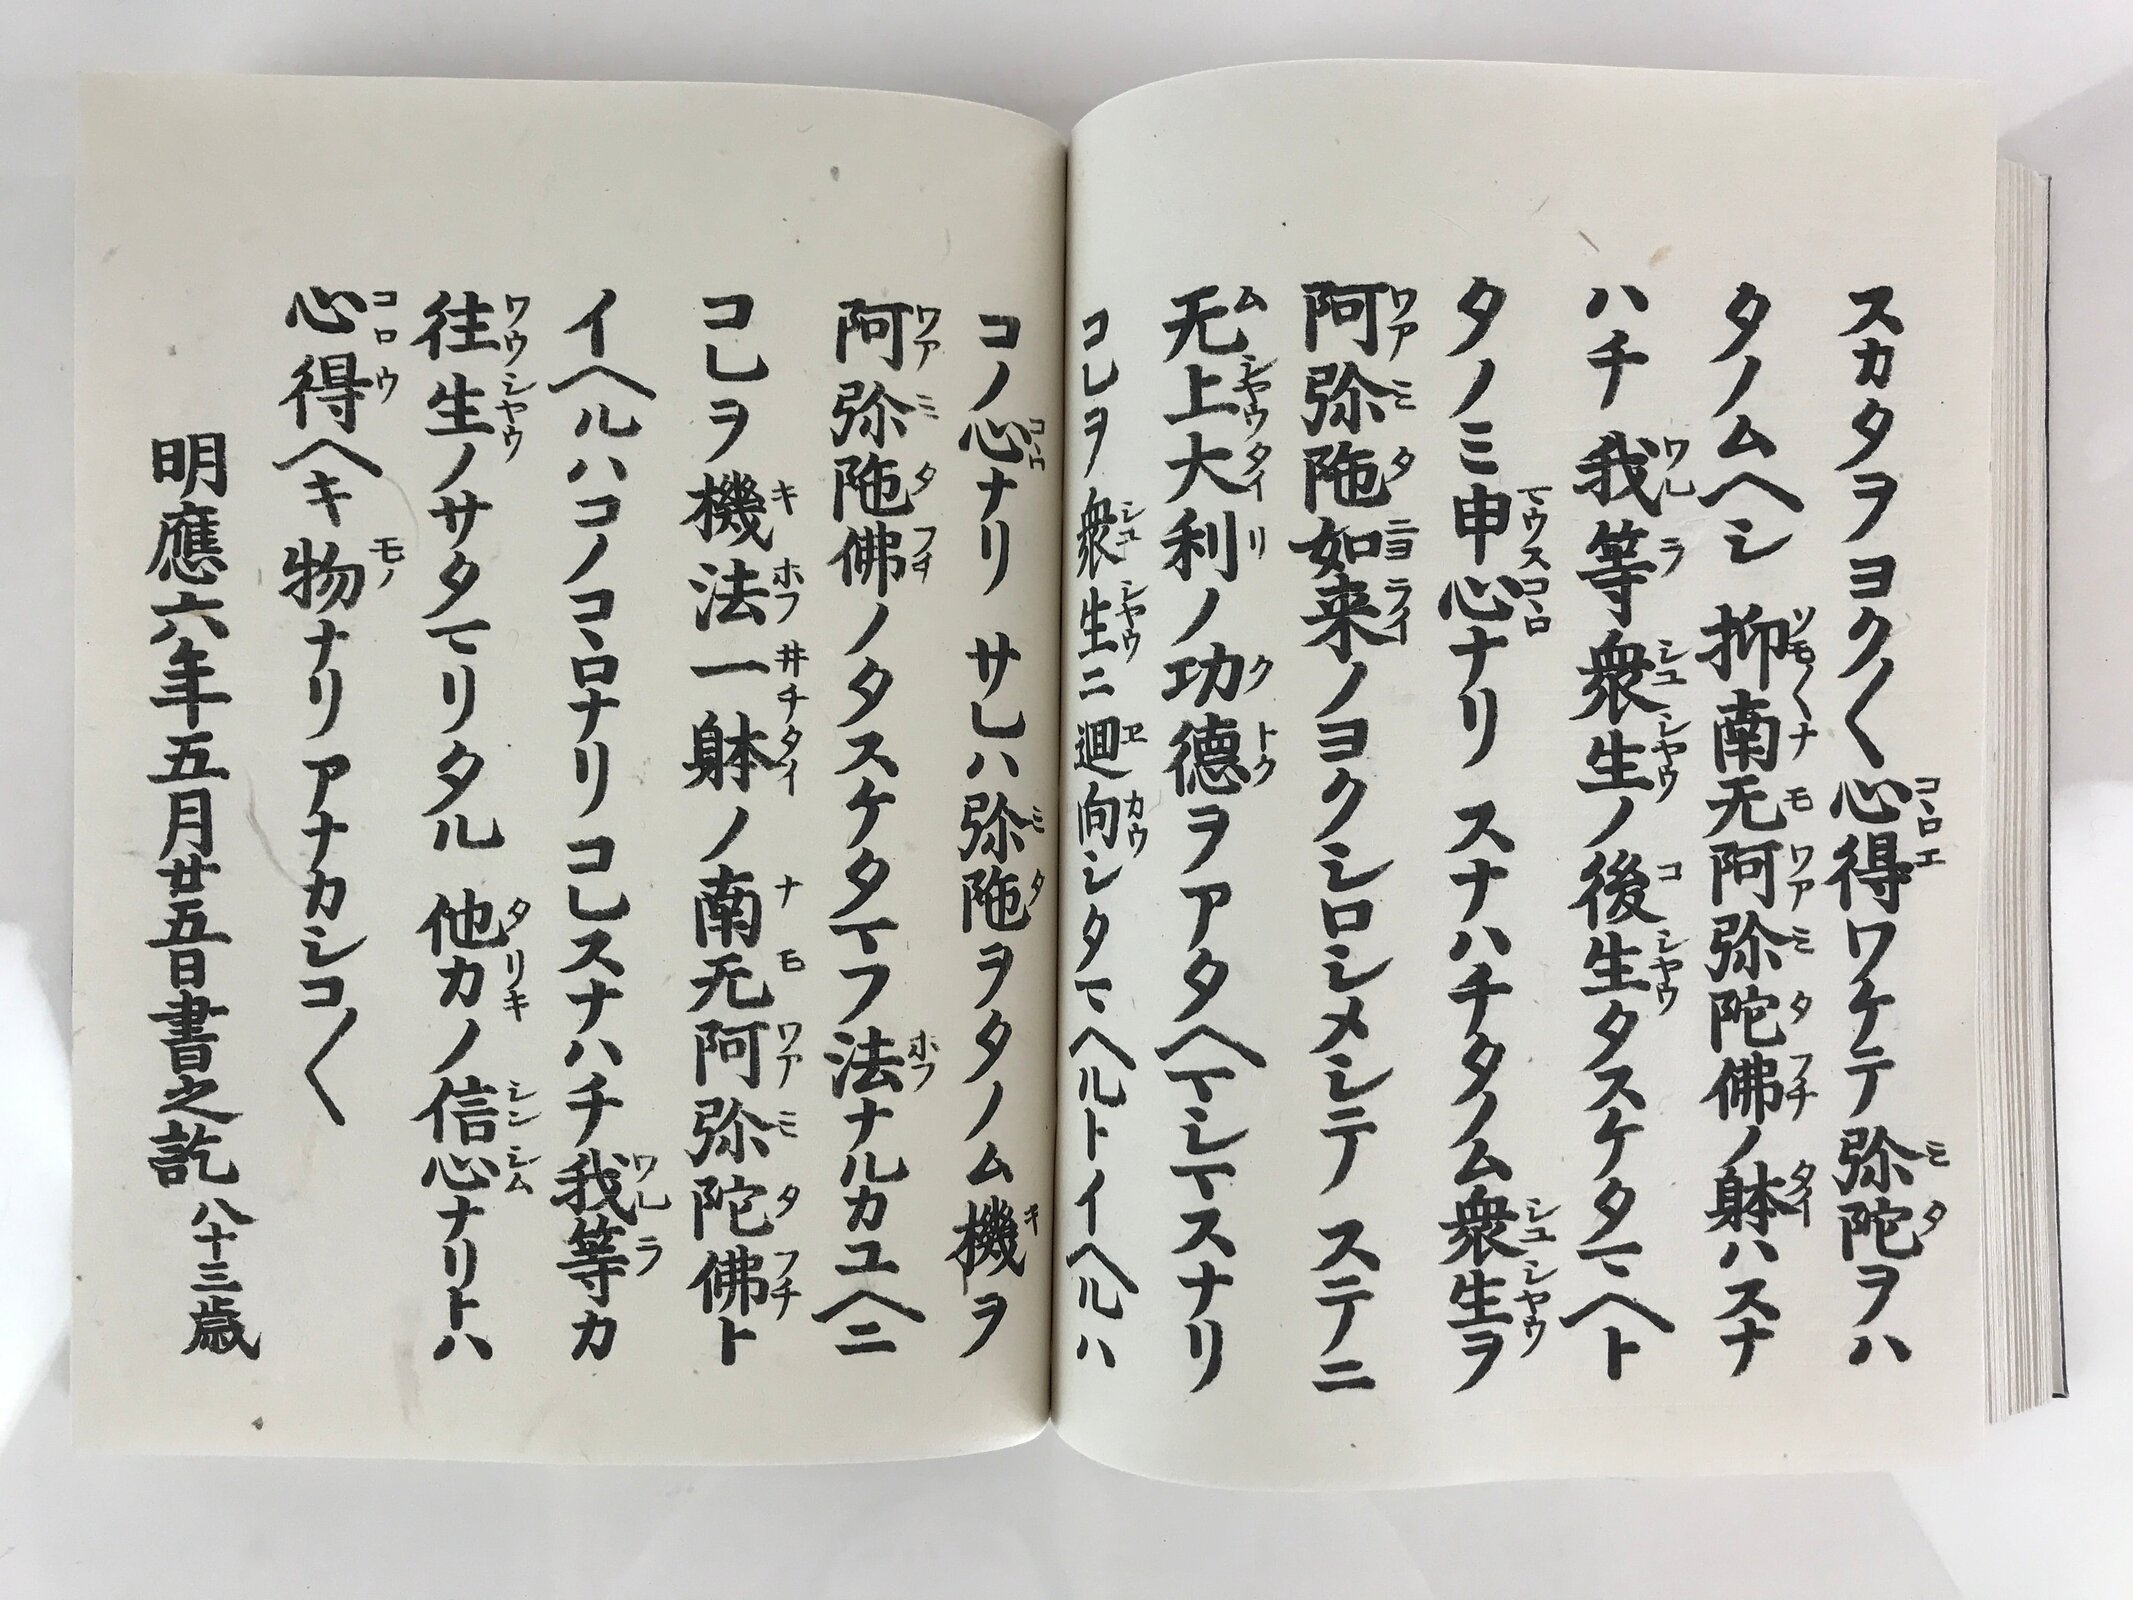 スカタヲヨク〱心得ワケテ弥陀ヲハ
タノムヘシ 抑南无阿弥陀佛ノ躰ハスナ
ハチ我等衆生ノ後生タスケタマヘト
タノミ申心ナリ スナハチタノム衆生ヲ
阿弥陁如来ノヨクシロシメシテ ステニ
无上大利ノ功德ヲアタヘマシマスナリ
コレヲ衆生ニ廻向シタマヘルトイヘルハ
コノ心ナリ サレハ弥陁ヲタノム機ヲ
阿弥陁佛ノタスケタマフ法ナルカユヘニ
コレヲ機法一躰ノ南无阿弥陀佛ト
イヘルハコノコヽロナリ コレスナハチ我等カ
往生ノサタマリタル 他力ノ信心ナリトハ
心得ヘキ物ナリ アナカシコ〱
明應六年五月廿五日書之訖 八十三歳